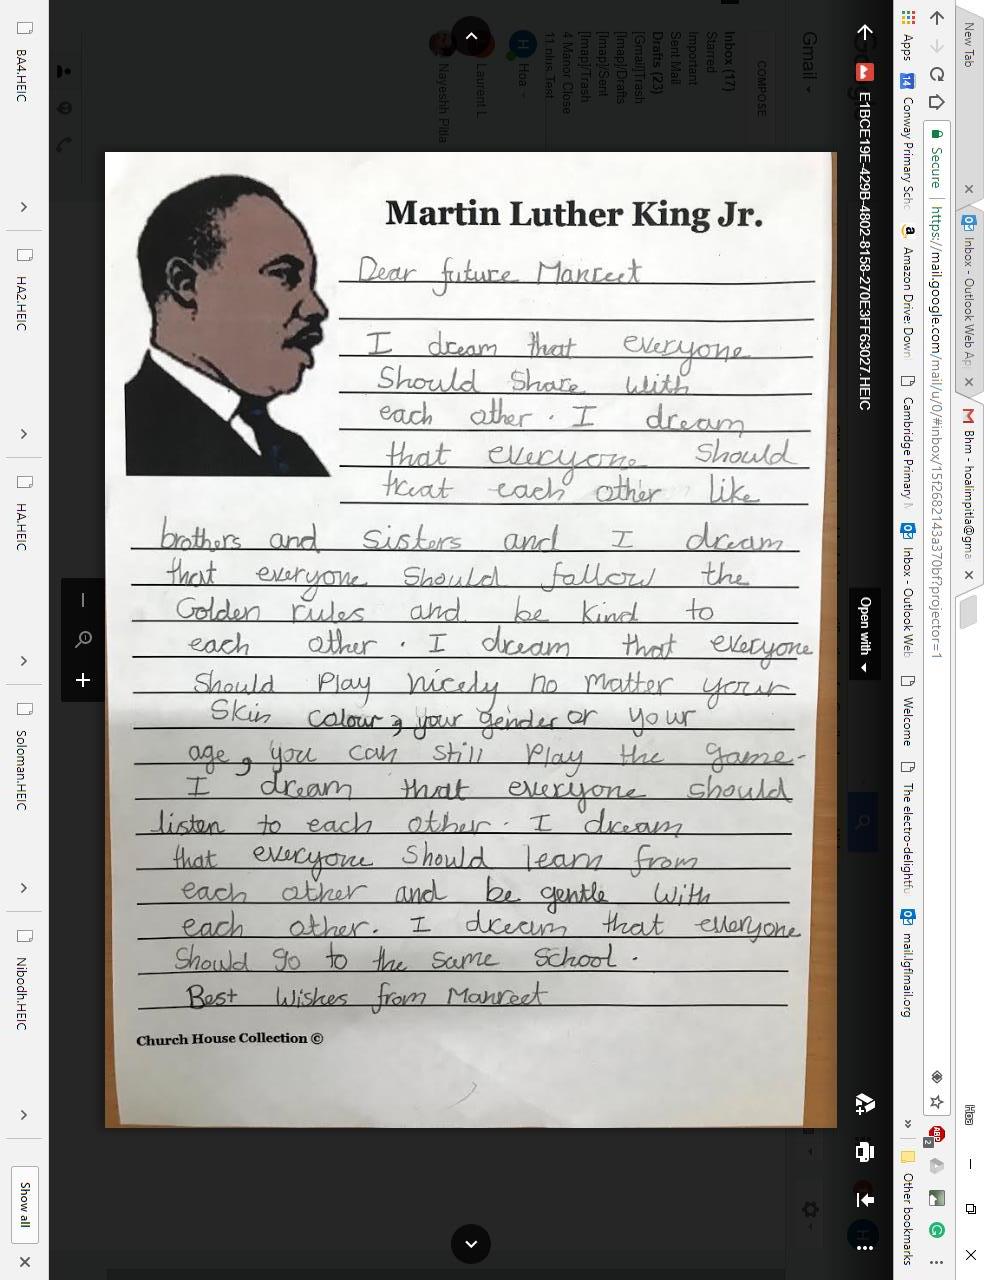 Martin Luther King Jr.
Dear future Manreet
I dream that everyone
Should Share with
each other. I dream
that everyone should
treat each other like
brothers and sisters and I dream
that everyone should follow the
Golden rules and be kind to
each other. I dream that everyone
Should Play nicely no matter your
Skin colour, your gender or your
age, you can still Play the game.
I dream that everyone should
listen to each other. I dream
that everyone should learn from
each other and be gentle with
each other. I dream that everyone
Should go to the same School.
Best Wishes from Manreet
Church House Collection ©
New Tab
Inbox - Outlook Web Ap
Bhm - hoalimpitla@gma
Hoa
Secure
https://mail.google.com/mail/u/0/#inbox/15f2682143a370bf?projector=1
Apps
Conway Primary Sch
Amazon Drive: Down
Cambridge Primary
Inbox - Outlook Web
Welcome
The electro-delightf
mail.lgflmail.org
Other bookmarks
E1BCE19E-429B-4802-8158-270E3FF63027.HEIC
Open with
Gmail
COMPOSE
Inbox (17)
Starred
Important
Sent Mail
Drafts (23)
[Gmail]Trash
[Imap]/Drafts
[Imap]/Sent
[Imap]/Trash
4 Manor Close
11 plus Test
Hoa
Laurent L
Nayeshh Pitla
BA4.HEIC
HA2.HEIC
HA.HEIC
Soloman.HEIC
Nibodh.HEIC
Show all